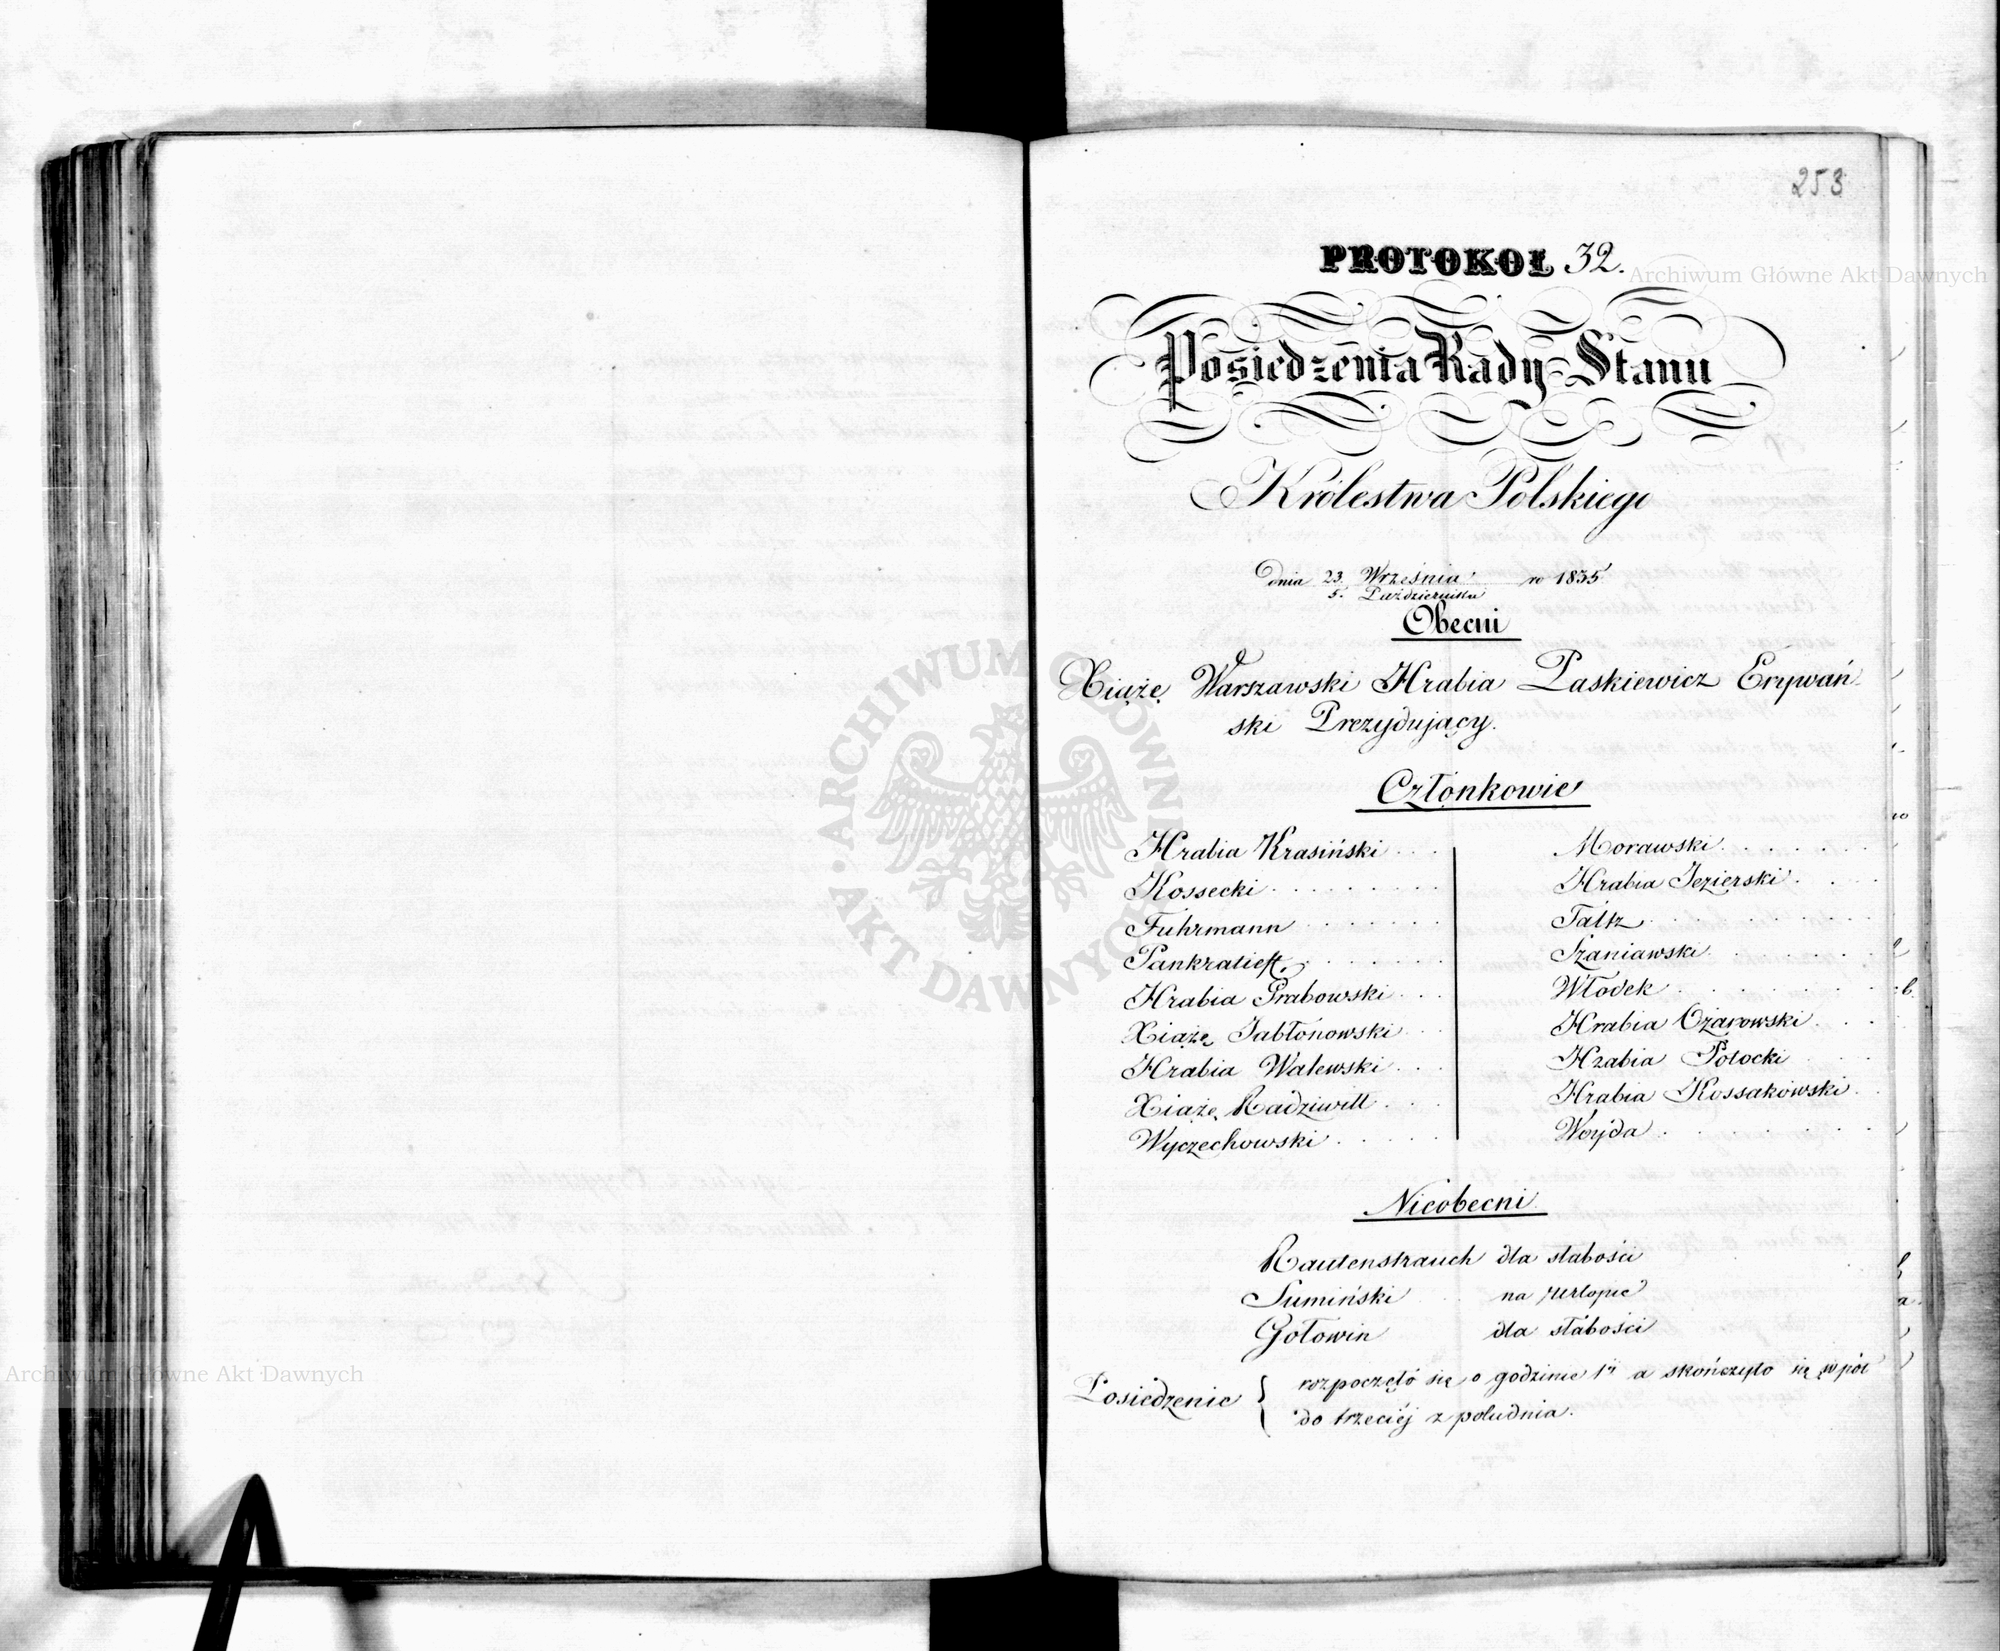 253
PROTOKOŁ 32.
Posiedzenia Rady Stanu
Królestwa Polskiego
Dnia 23. Września / 5. Października ro 1835.
Obecni
Xiążę Warszawski Hrabia Paskiewicz Erywań-
ski Prezydujący.
Członkowie
Hrabia Krasiński . . .
Kossecki . . . . . . . .
Fuhrmann . . . . . . .
Pankratieff . . . . . .
Hrabia Grabowski . . .
Xiążę Jabłonowski . .
Hrabia Walewski . . .
Xiążę Radziwiłł . . .
Wyczechowski . . . . .
Morawski . . . . . . .
Hrabia Jezierski . . .
Faltz . . . . . . . . .
Szaniawski . . . . . .
Włodek . . . . . . . .
Hrabia Ożarowski . . .
Hrabia Potocki . . .
Hrabia Kossakowski . .
Woyda . . . . . . . .
Nieobecni
Rautenstrauch dla słabości
Sumiński na urlopie
Gołowin dla słabości
Posiedzenie { rozpoczęło się o godzinie 1éj a skończyło się w pół
do trzeciéj z południa.
Archiwum Główne Akt Dawnych
Archiwum Główne Akt Dawnych
ARCHIWUM GŁÓWNE AKT DAWNYCH